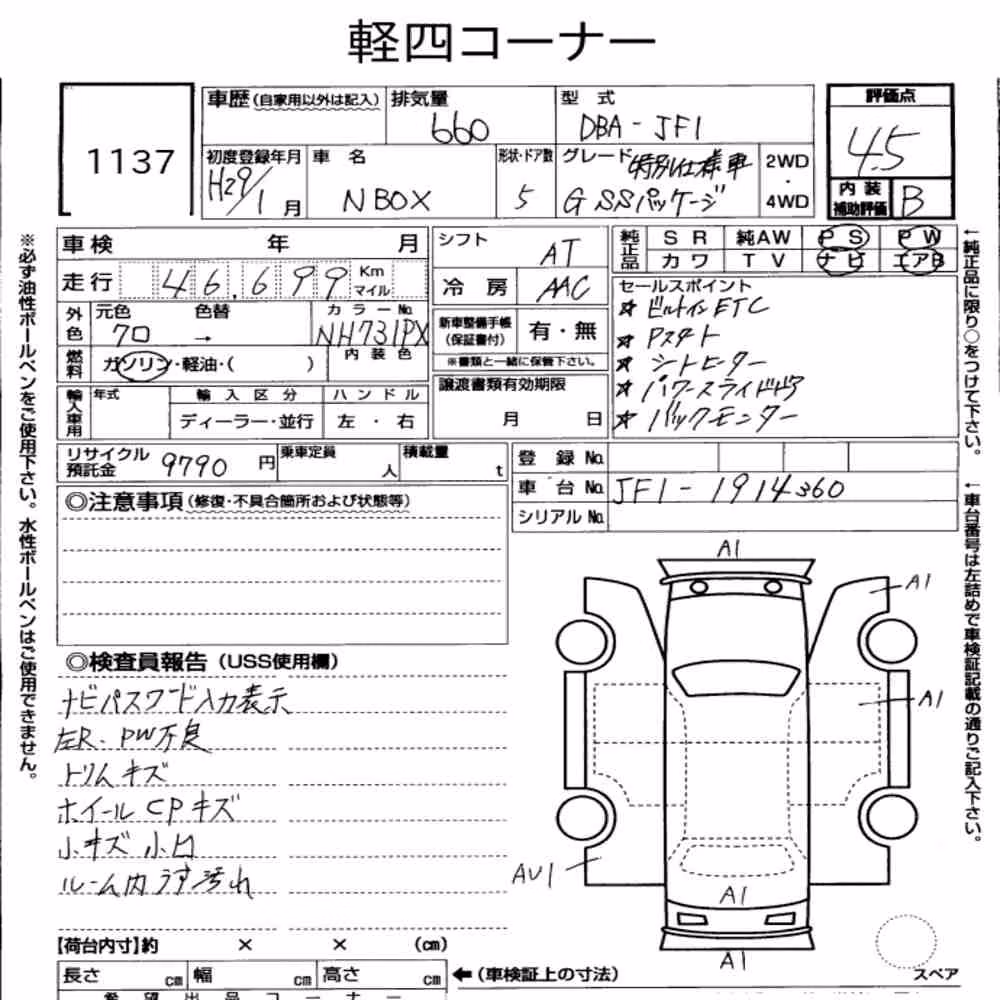 軽四コーナー
1137
車歴(自家用以外は記入)
排気量
660
型 式
DBA-JF1
評価点
4.5
初度登録年月
H29/1月
車 名
N BOX
形状・ドア数
5
グレード 特別仕様車
G SSパッケージ
2WD
・
4WD
内 装
補助評価
B
車検 年 月
シフト
AT
純正品
S R 純AW P S P W
カワ T V ナビ エアB
走行 46,699 Km マイル
冷 房
AAC
セールスポイント
★ ビルトインETC
★ Pスタート
★ シートヒーター
★ パワースライドドア
★ バックモニター
外色
元色 色替 カラーNo.
クロ → NH731PX
新車整備手帳
(保証書付)
有・無
※書類と一緒に保管下さい。
燃料
ガソリン・軽油・( )
内 装 色
譲渡書類有効期限
月 日
輸入車用
年式
輸 入 区 分
ハ ン ド ル
ディーラー・並行
左 ・右
リサイクル
預託金
9790 円
乗車定員
人
積載量
t
登 録 No.
車 台 No.
JF1-1914360
シリアル No.
◎注意事項(修復・不具合箇所および状態等)
◎検査員報告(USS使用欄)
ナビパスワード入力表示
左R.PW不良
トリムキズ
ホイールCPキズ
小キズ小凹
ルーム内うす汚れ
A1
A1
A1
AU1
A1
A1
スペア
【荷台内寸】約 × × (cm)
長さ cm 幅 cm 高さ cm
←(車検証上の寸法)
希 望 出 品 コ ー ナ ー
※必ず油性ボールペンをご使用下さい。水性ボールペンはご使用できません。
←純正品に限り○をつけて下さい。
←車台番号は左詰めで車検証記載の通りご記入下さい。